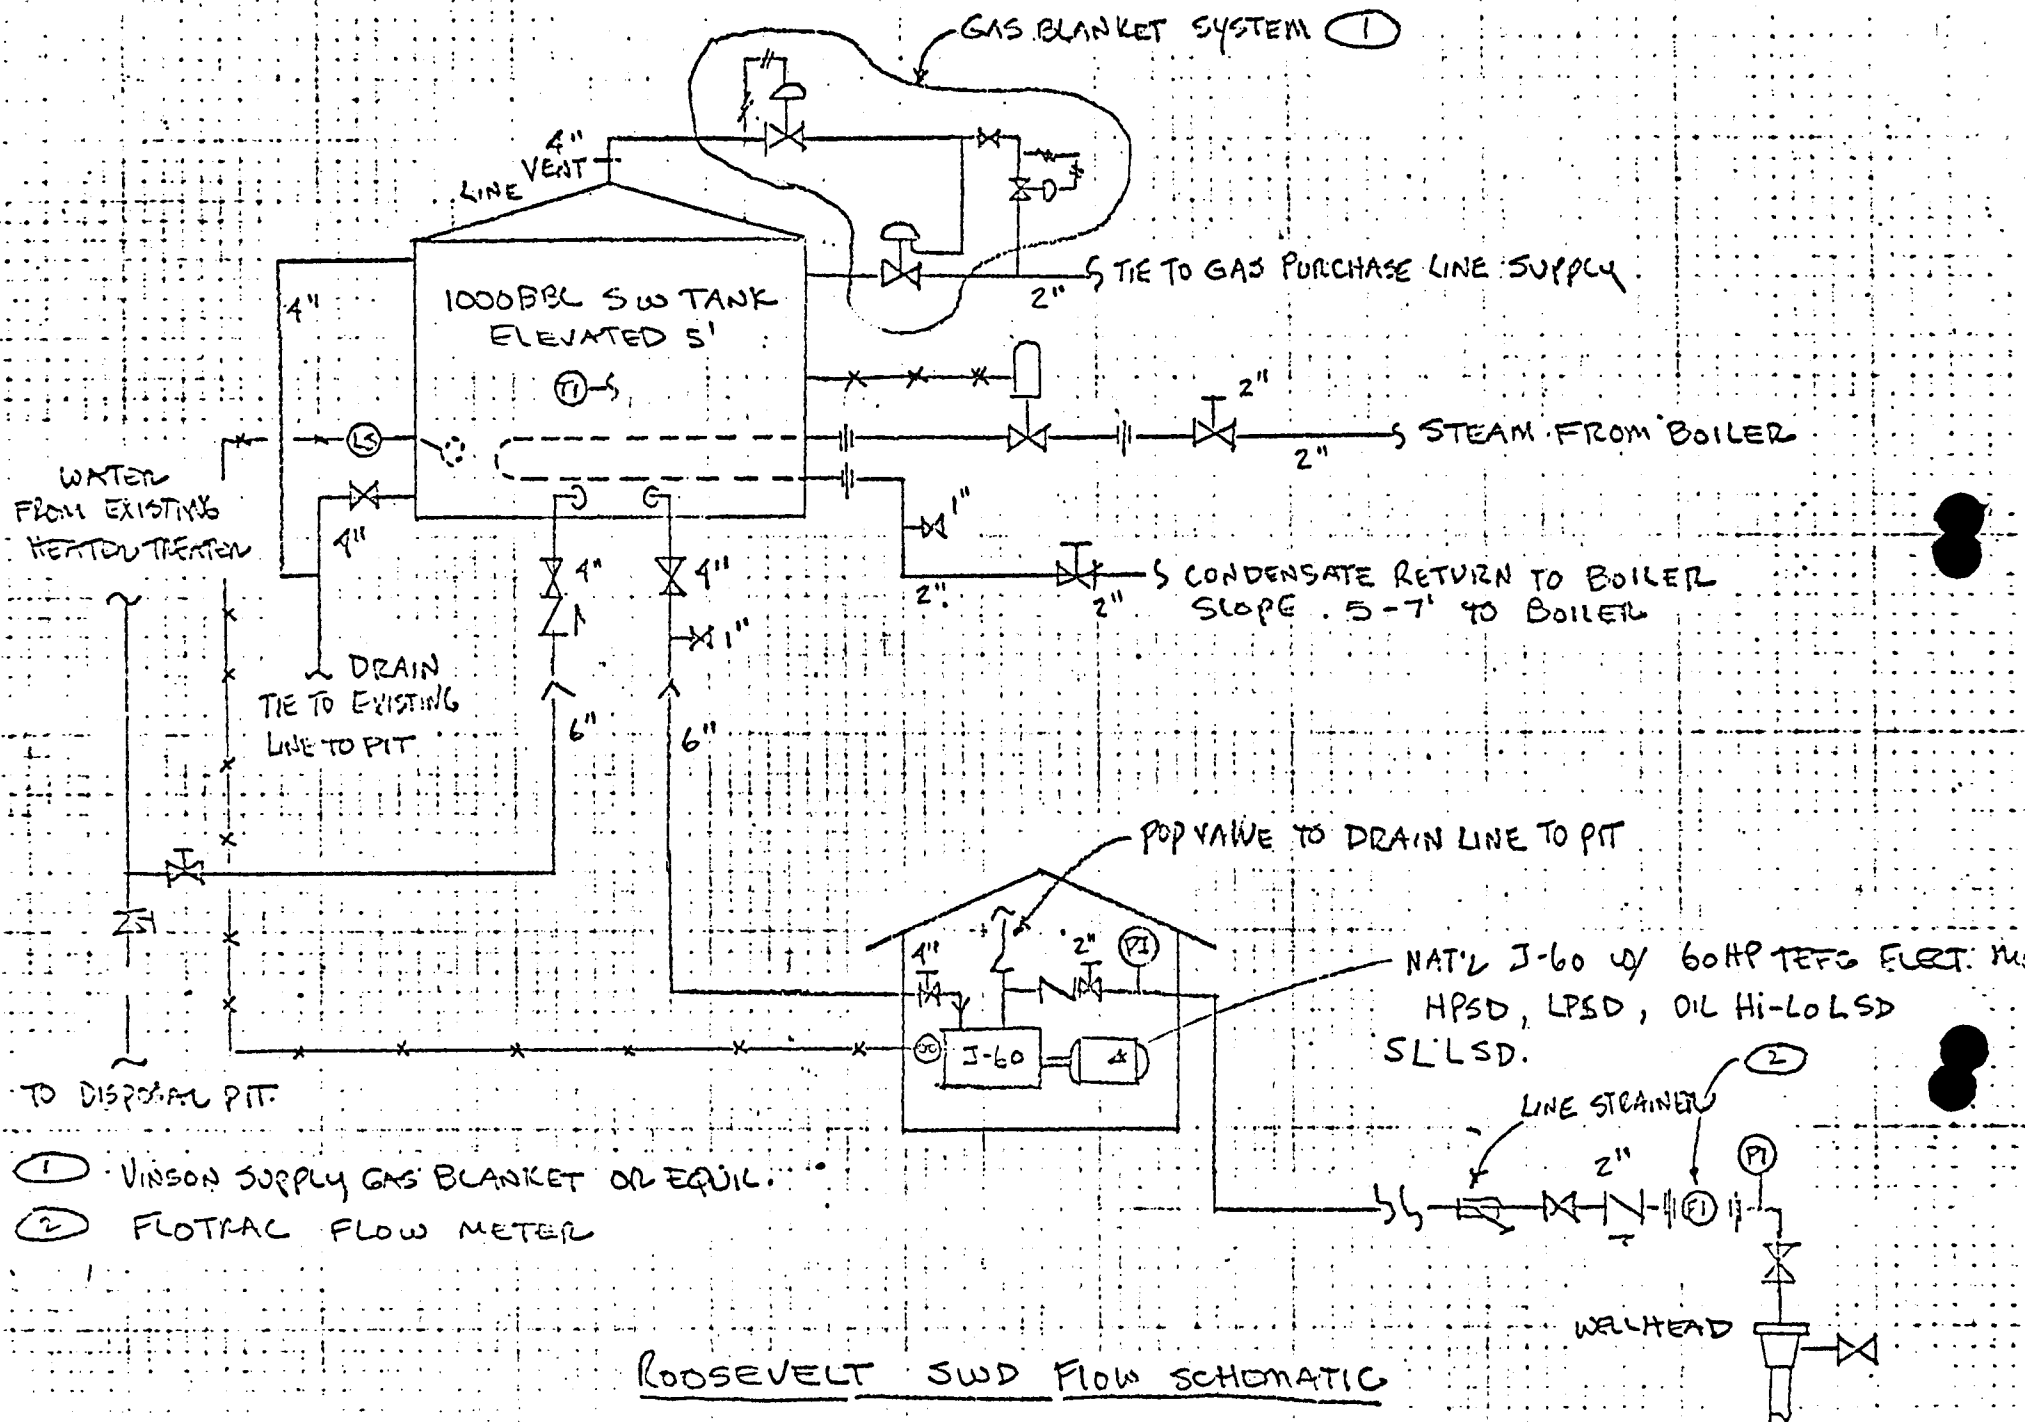 GAS BLANKET SYSTEM 1
4"
VENT
LINE
4"
1000BBL SW TANK
ELEVATED 5'
TI
TIE TO GAS PURCHASE LINE SUPPLY
2"
2"
STEAM FROM BOILER
2"
LS
WATER
FROM EXISTING
HEATER TREATER
4"
4"
4"
1"
1"
2"
2"
CONDENSATE RETURN TO BOILER
SLOPE .5-7' TO BOILER
DRAIN
TIE TO EXISTING
LINE TO PIT
6"
6"
POP VALVE TO DRAIN LINE TO PIT
4"
2"
PI
J-60
NAT'L J-60 W/ 60HP TEFC ELECT.
HPSD, LPSD, OIL Hi-Lo LSD
SL'LSD.
2
TO DISPOSAL PIT.
LINE STRAINER
2"
PI
FI
1 VINSON SUPPLY GAS BLANKET OR EQUIL.
2 FLOTRAC FLOW METER
WELLHEAD
ROOSEVELT SWD FLOW SCHEMATIC